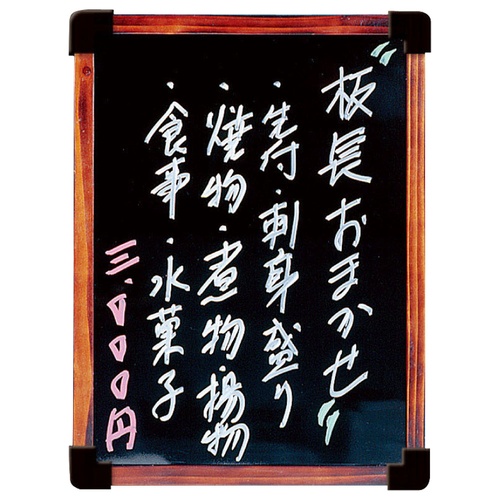 〝板長おまかせ〟
・先付・刺身盛り
・焼物・煮物・揚物
・食事・水菓子
三、〇〇〇円